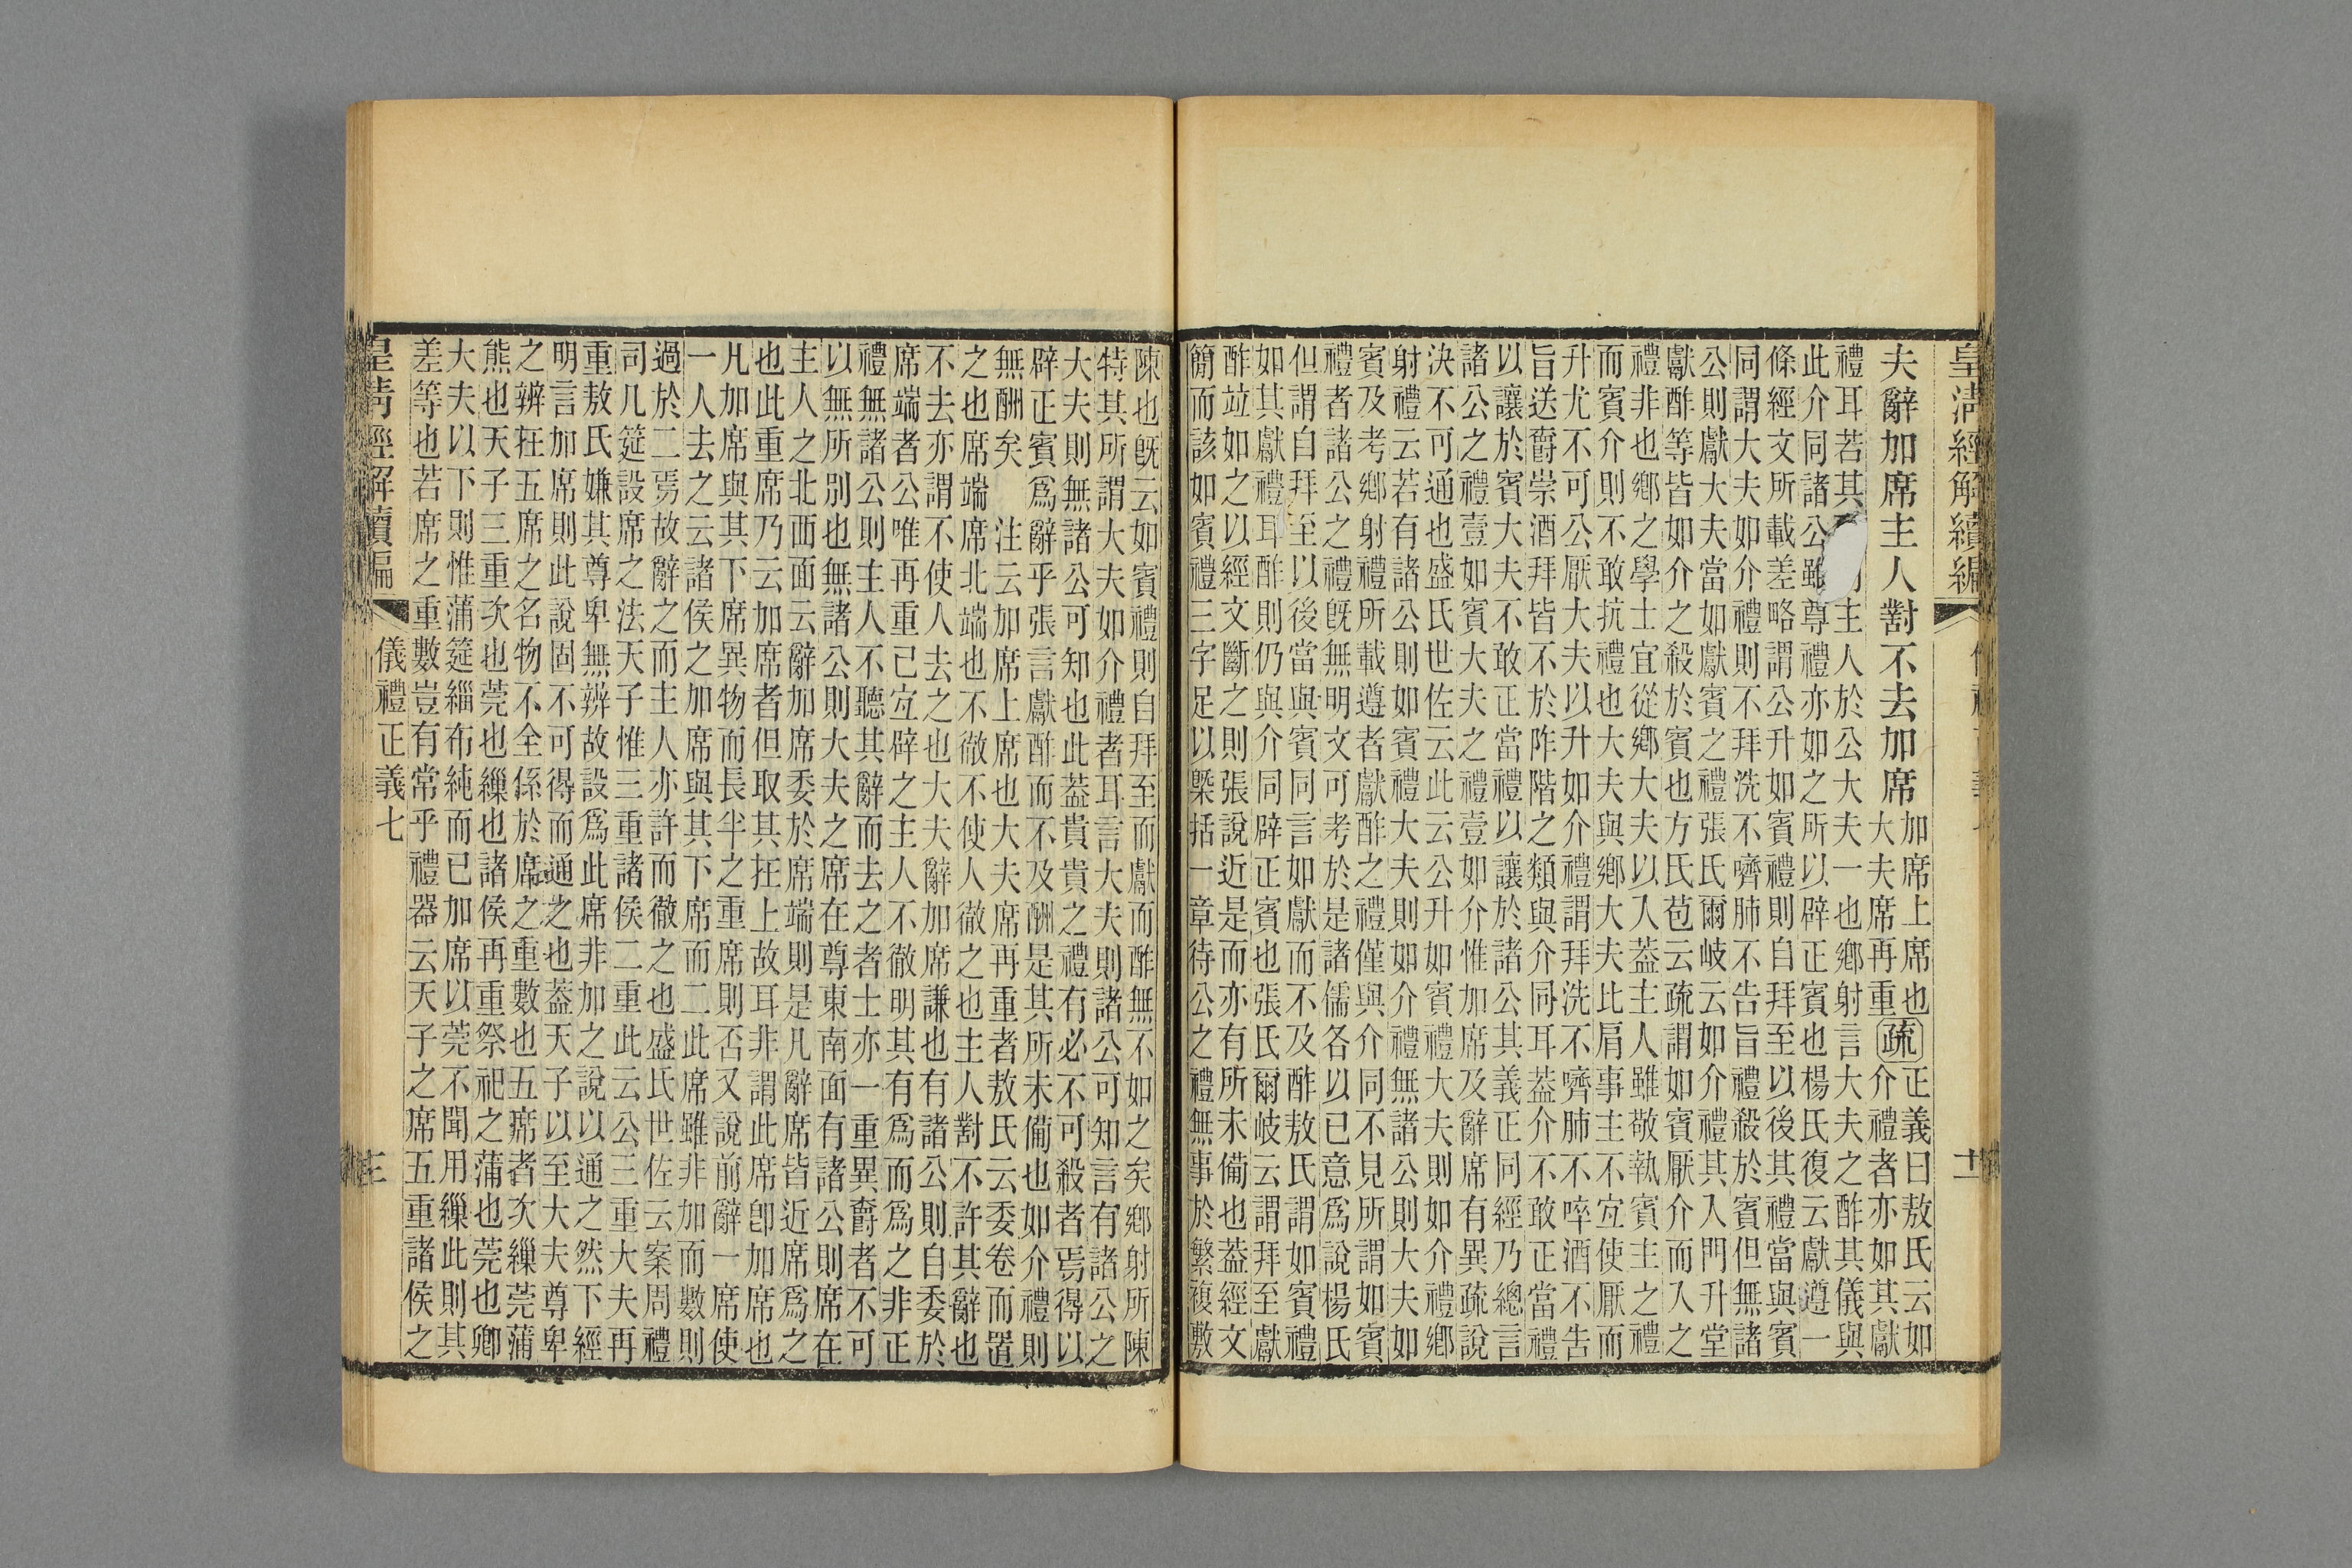 皇清經解續編
夫辭加席主人對不去加席
加席上席也
大夫席再重
疏
正義曰敖氏云如
介禮者亦如其獻
禮耳若其主人於公大夫一也鄉射言大夫之酢其儀與
此介同諸公雖尊禮亦如之所以辟正賓也楊氏復云獻遵一
條經文所載差略謂公升如賓禮則自拜至以後其禮當與賓
同謂大夫如介禮則不拜洗不嚌肺不告旨禮殺於賓但無諸
公則獻大夫當如獻賓之禮張氏爾岐云如介禮其入門升堂
獻酢等皆如介之殺於賓也方氏苞云疏謂如賓厭介而入之
禮非也鄉之學士宜從鄉大夫以入蓋主人雖敬執賓主之禮
而賓介則不敢抗禮也大夫與鄉大夫比肩事主不宜使厭而
升尤不可公厭大夫以升如介禮謂拜洗不嚌肺不啐酒不告
旨送爵崇酒拜皆不於阼階之類與介同耳蓋介不敢正當禮
以讓於賓大夫不敢正當禮以讓於諸公其義正同經乃總言
諸公之禮壹如賓大夫之禮壹如介惟加席及辭席有異疏說
決不可通也盛氏世佐云此云公升如賓禮大夫則如介禮鄉
射禮云若有諸公則如賓禮大夫則如介禮無諸公則大夫如
賓及考鄉射禮所載遵者獻酢之禮僅與介同不見所謂如賓
禮者諸公之禮旣無明文可考於是諸儒各以已意爲說楊氏
但謂自拜至以後當與賓同言如獻而不及酢敖氏謂如賓禮
如其獻禮耳酢則仍與介同辟正賓也張氏爾岐云謂拜至獻
酢竝如之以經文斷之則張說近是而亦有所未備也蓋經文
簡而該如賓禮三字足以槩括一章待公之禮無事於繁複敷
陳也旣云如賓禮則自拜至而獻而酢無不如之矣鄉射所陳
特其所謂大夫如介禮者耳言大夫則諸公可知言有諸公之
大夫則無諸公可知也此蓋貴貴之禮有必不可殺者焉得以
辟正賓爲辭乎張言獻酢而不及酬是其所未備也如介禮則
無酬矣　注云加席上席也大夫席再重者敖氏云委卷而置
之也席端席北端也不徹不使人徹之也主人對不許其辭也
不去亦謂不使人去之也大夫辭加席謙也有諸公則自委於
席端者公唯再重已宜辟之主人不徹明其有爲而爲之非正
禮無諸公則主人不聽其辭而去之者士亦一重異爵者不可
以無所別也無諸公則大夫之席在尊東南面有諸公則席在
主人之北西面云辭加席委於席端則是凡辭席皆近席爲之
也此重席乃云加席者但取其在上故耳非謂此席卽加席也
凡加席與其下席異物而長半之重席則否又說前辭一席使
一人去之云諸侯之加席與其下席而二此席雖非加而數則
過於二焉故辭之而主人亦許而徹之也盛氏世佐云案周禮
司几筵設席之法天子惟三重諸侯二重此云公三重大夫再
重敖氏嫌其尊卑無辨故設爲此席非加之說以通之然下經
明言加席則此說固不可得而通之也蓋天子以至大夫尊卑
之辨在五席之名物不全係於席之重數也五席者次繅莞蒲
熊也天子三重次也莞也繅也諸侯再重祭祀之蒲也莞也卿
大夫以下則惟蒲筵緇布純而已加席以莞不聞用繅此則其
差等也若席之重數豈有常乎禮器云天子之席五重諸侯之
皇清經解續編 儀禮正義七